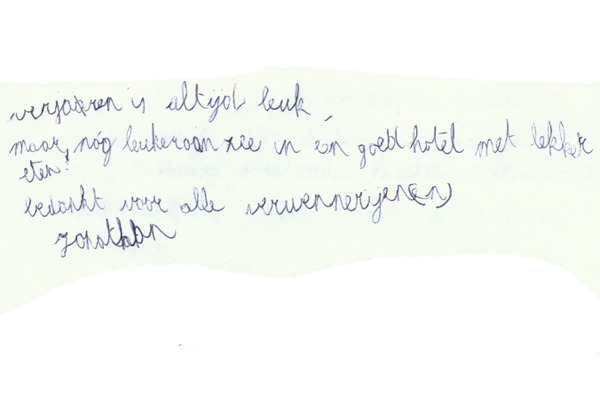 verjaaren is altijd leuk,
maar, nóg leuker aan zee in én goed hotel met lekker
eten!
bedankt voor alle verwennerijen(en)
Jonathan